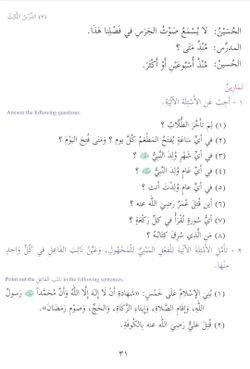 (٣) الدَّرْسُ الثَّالِثُ
الحُسَيْنُ: لَا يُسْمَعُ صَوْتُ الجَرَسِ فِي فَصْلِنَا هَذَا.
المدرِّس: مُنْذُ مَتَى ؟
الحسينُ: مُنْذُ أُسْبُوعَيْنِ أَوْ أَكْثَرَ.
تَمَارِينُ
١ - أَجِبْ عَنِ الأَسْئِلَةِ الآتِيَةِ.
Answer the following questions.
(١) لِمَ تَأَخَّرَ الطُّلَّابُ ؟
(٢) فِي أَيِّ سَاعَةٍ يُفْتَحُ المَطْعَمُ كُلَّ يومٍ ؟ وَمَتَى فُتِحَ اليَوْمَ ؟
(٣) فِي أَيِّ شَهْرٍ وُلِدَ النَّبِيُّ ﷺ ؟
(٤) فِي أَيِّ عَامٍ وُلِدَ النَّبِيُّ ﷺ ؟
(٥) فِي أَيِّ عَامٍ وُلِدْتَ أنت ؟
(٦) أين قُتِلَ عُمَرُ رَضِيَ الله عنه ؟
(٧) أَيُّ سُورَةٍ تُقْرَأُ فِي كُلِّ رَكْعَةٍ ؟
(٨) مَنِ الَّذِي سُرِقَ كِتَابُهُ ؟
٢ - تَأَمَّلِ الأَمْثِلَةَ الآتِيَةَ لِلْفِعْلِ المَبْنِيِّ لِلْمَجْهُولِ، وَعَيِّنْ نَائِبَ الفَاعِلِ فِي كُلِّ وَاحِدٍ
مِنْهَا.
Point out the نائب الفاعل in the following sentences.
(١) بُنِيَ الإِسْلَامُ عَلَى خَمْسٍ: «شَهَادَةِ أَنْ لَا إِلَهَ إِلَّا اللَّهُ وَأَنَّ مُحَمَّداً ﷺ رَسُولُ
اللَّهِ، وَإِقَامِ الصَّلَاةِ، وَإِيتَاءِ الزَّكَاةِ، وَالحَجِّ، وَصَوْمِ رَمَضَانَ».
(٢) قُتِلَ عَلِيٌّ رَضِيَ الله عنه بِالكُوفَةِ.
٣١